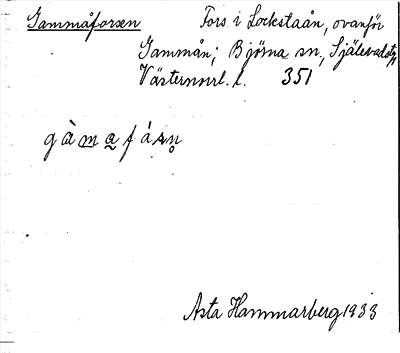 Gammåforsen Fors i Lockstaån, ovanför
Gammån; Björna sn, Själevads tg
Västernorrl. l. 351
gàmafársn̥
Asta Hammarberg 1933